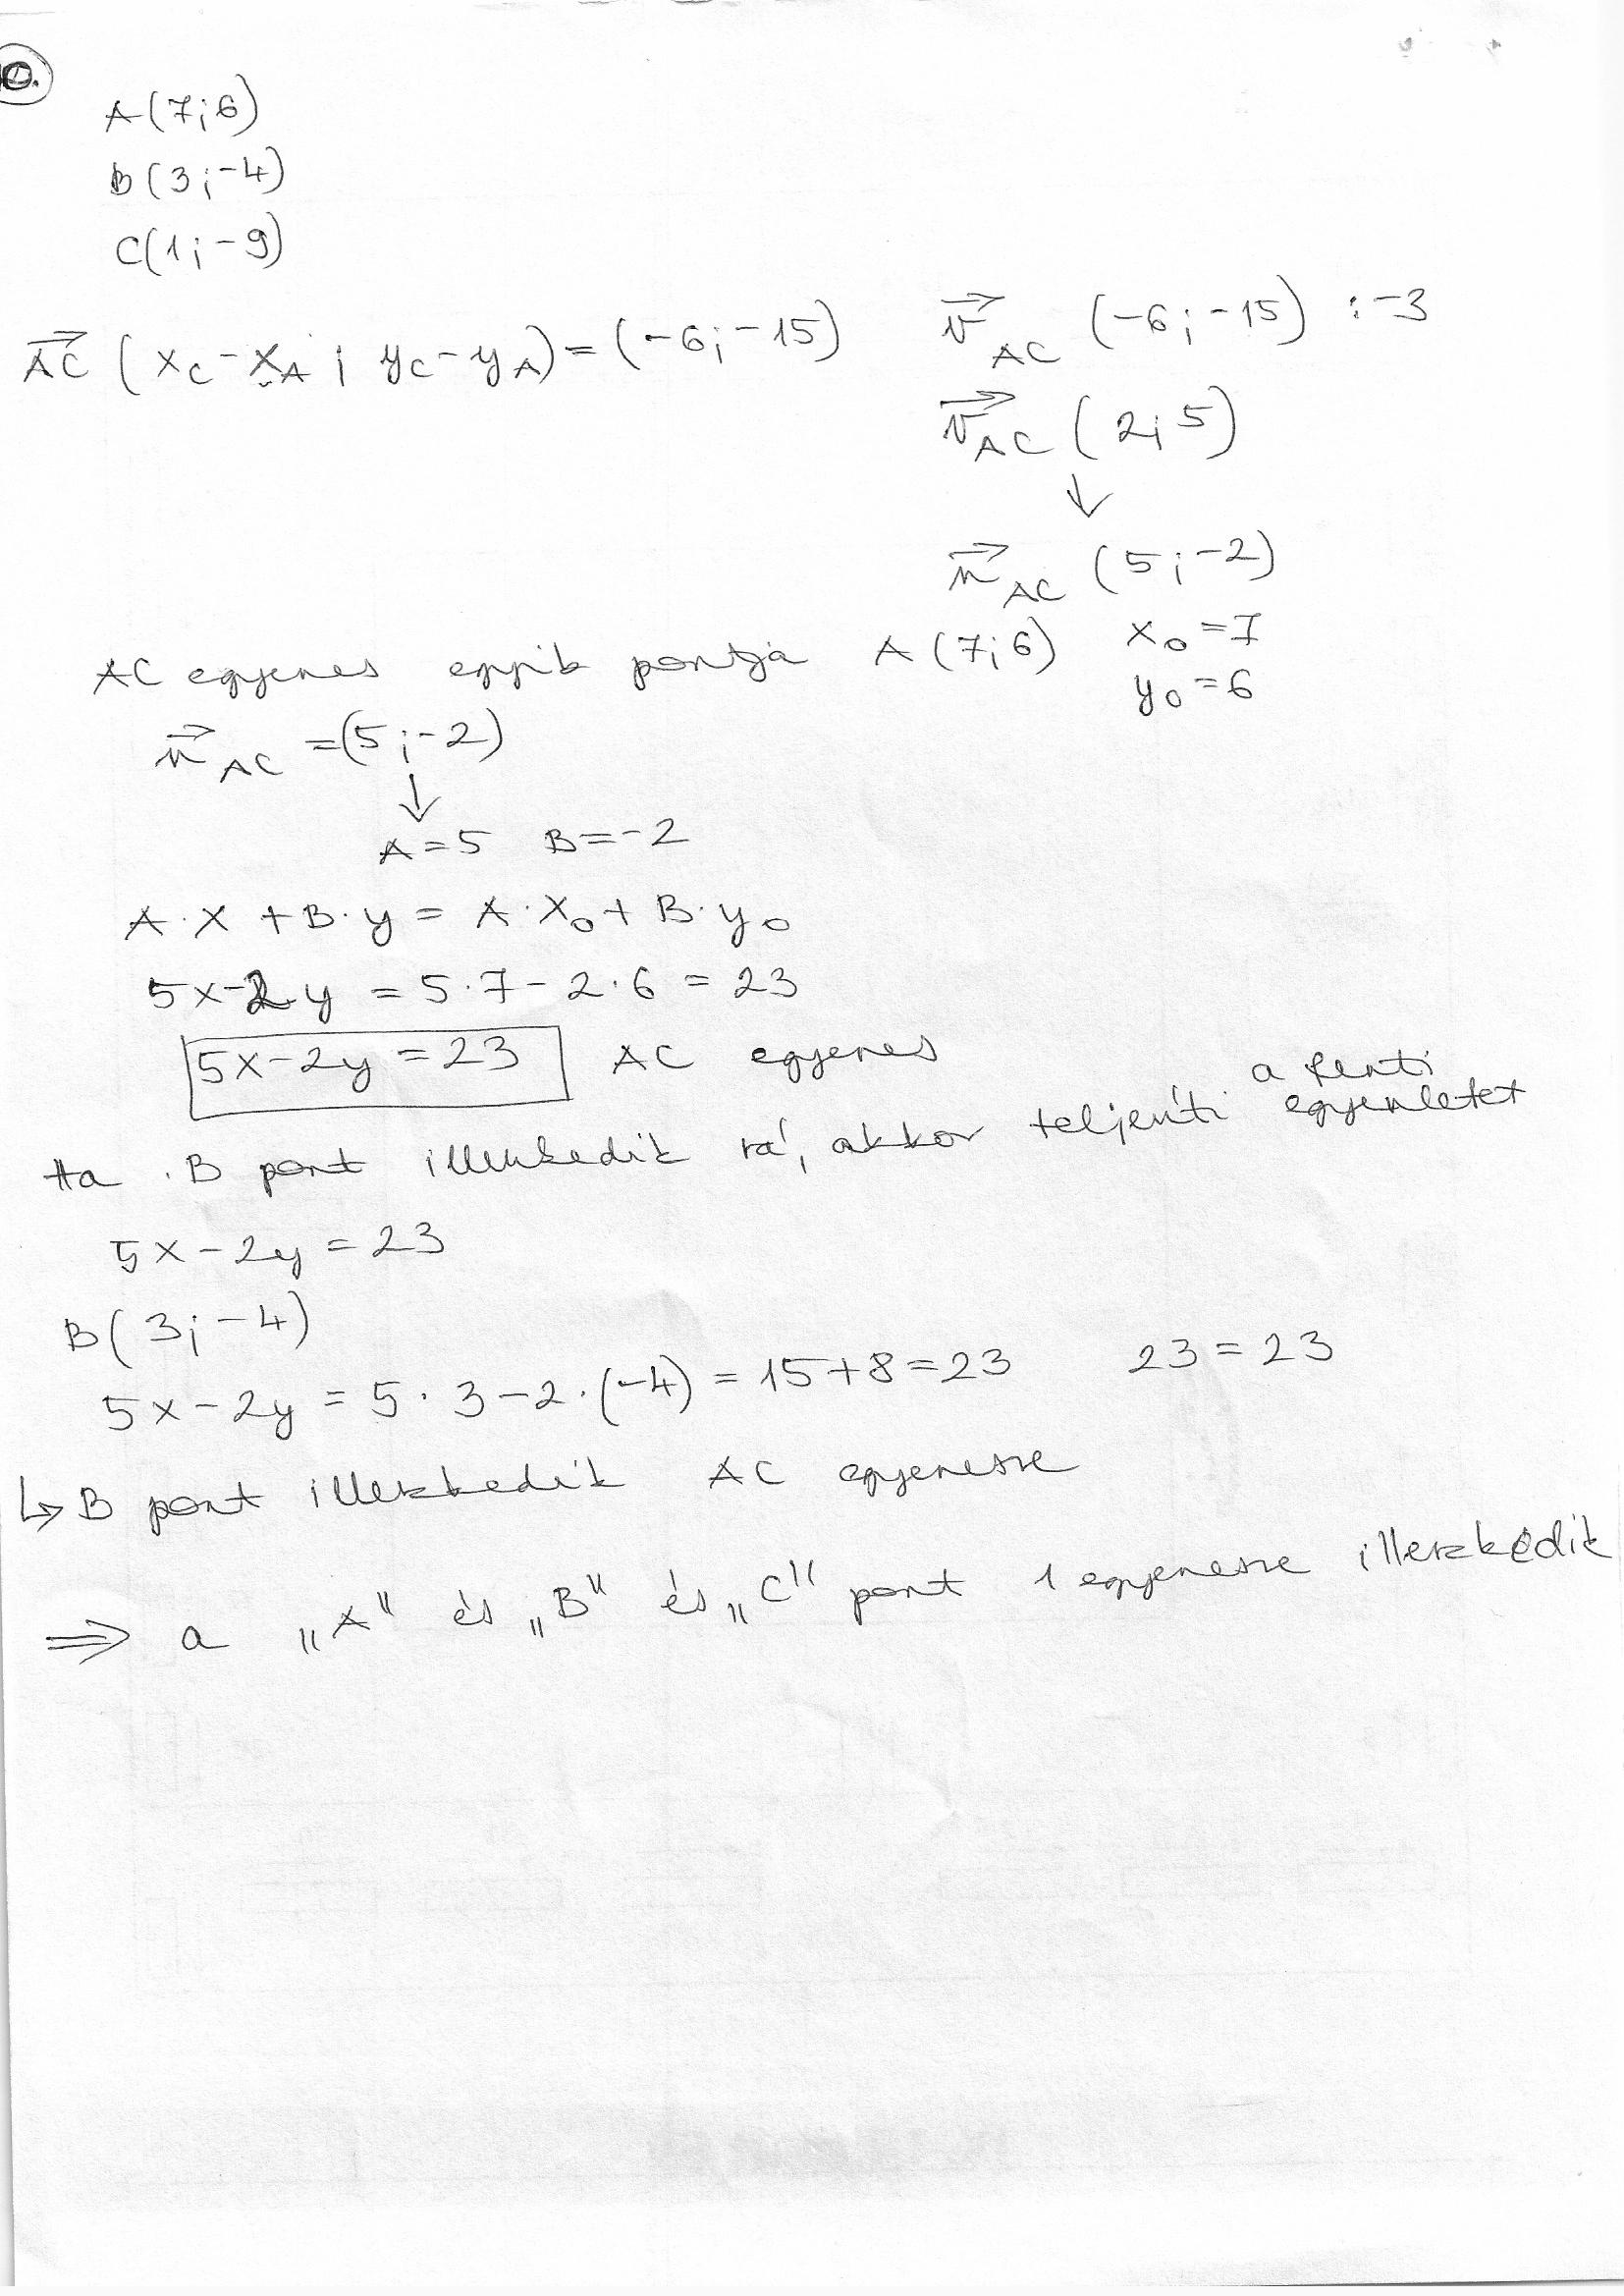 10.
A(7;6)
B(3;-4)
C(1;-9)
AC→ (x_C-x_A ; y_C-y_A)=(-6;-15)
v→_AC (-6;-15) :-3
v→_AC (2;5)
↓
n→_AC (5;-2)
AC egyenes egyik pontja A(7;6) x₀=7
y₀=6
n→_AC =(5;-2)
↓
A=5 B=-2
A·x+B·y=A·x₀+B·y₀
5x-2y=5·7-2·6=23
5x-2y=23 AC egyenes
Ha B pont illeszkedik rá, akkor teljesíti a fenti egyenletet
5x-2y=23
B(3;-4)
5x-2y=5·3-2·(-4)=15+8=23 23=23
↳ B pont illeszkedik AC egyenesre
⇒ a „A" és „B" és „C" pont 1 egyenesre illeszkedik